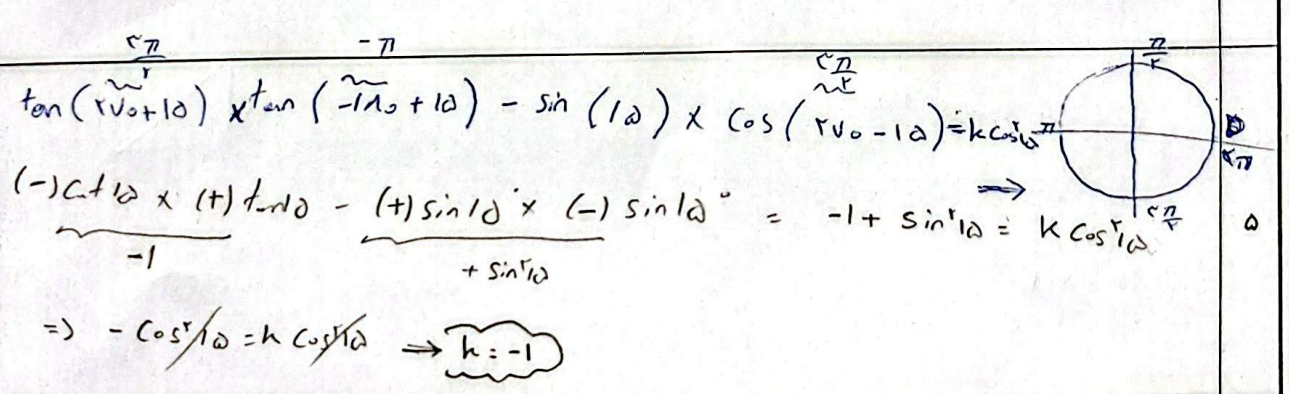 ۳π/۲ -π ۳π/۲ π/۲
tan(۲۷۰+۱۵) × tan(-۱۸۰+۱۵) - sin(۱۵) × cos(۲۷۰-۱۵) = k cos²۱۵ π ۲π
(-) cot ۱۵ × (+) tan ۱۵ - (+) sin ۱۵° × (-) sin ۱۵° = -۱ + sin²۱۵ = k cos²۱۵ ⇒ ۳π/۲ ۵
-۱ + sin²۱۵
⇒ - cos²۱۵ = k cos²۱۵ → k = -۱